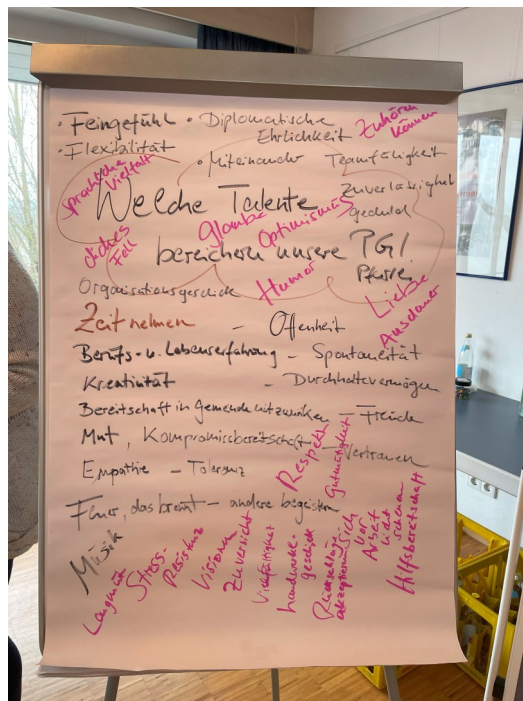 · Feingefühl · Diplomatische Ehrlichkeit
Zuhören können
· Flexibilität
· Miteinander Teamfähigkeit
sprachliche Vielfalt
Zuverlässigkeit
Geduld
Welche Talente
Glaube
Optimismus
dickes Fell
bereichern unsere PG/
Pfarrei
Organisationsgeschick
Humor
Liebe
Ausdauer
Zeit nehmen – Offenheit
Berufs- u. Lebenserfahrung – Spontaneität
Kreativität – Durchhaltevermögen
Bereitschaft in Gemeinde mitzuwirken – Freude
Mut, Kompromissbereitschaft – Vertrauen
Empathie – Toleranz
Respekt
Gutmütigkeit
Feuer, das brennt – andere begeistern
Musik
Langmut
Stress-Resistenz
Visionen
Zuversicht
Vielfältigkeit
handwerk. geschick
Rückschläge akzeptieren
sich vor Arbeit nicht scheuen
Hilfsbereitschaft